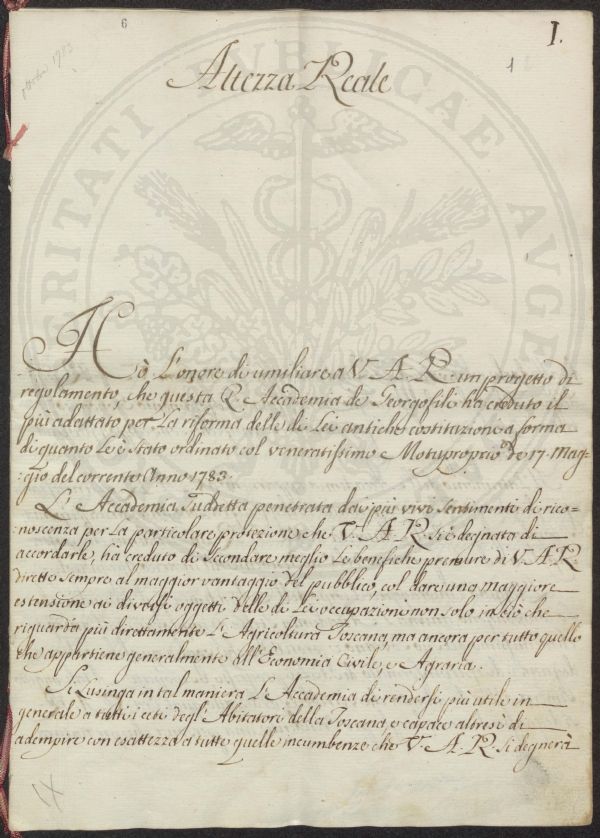 6
I.
1
Altezza Reale
Hò L'onore di umiliare a V. A. R. un progetto di
regolamento, che questa R. Accademia de Georgofili ha creduto il
più adattato per La riforma delle di Lei antiche costituzioni a forma
di quanto Le è stato ordinato col veneratissimo Motuproprio de 17. Mag-
:gio del corrente Anno 1783.
L'Accademia Sudetta penetrata da più vivi Sentimenti di rico=
:noscenza per La particolare protezione che V. A. R. si è degnata di
accordarle, ha creduto di Secondare meglio Le benefiche premure di V. A. R.
dirette Sempre al maggior vantaggio del pubblico, col dare una maggiore
estensione ai diversi oggetti delle di Lei occupazioni non solo in ciò che
riguarda più direttamente L'Agricoltura Toscana, ma ancora per tutto quello
che appartiene generalmente all'Economia Civile, e Agraria.
Si Lusinga in tal maniera L'Accademia di rendersi più utile in
generale a tutti i ceti degl'Abitatori della Toscana, e capace altresì di
adempire con esattezza a tutte quelle incumbenze che V. A. R. Si degnerà
PUBLICAE AUGE